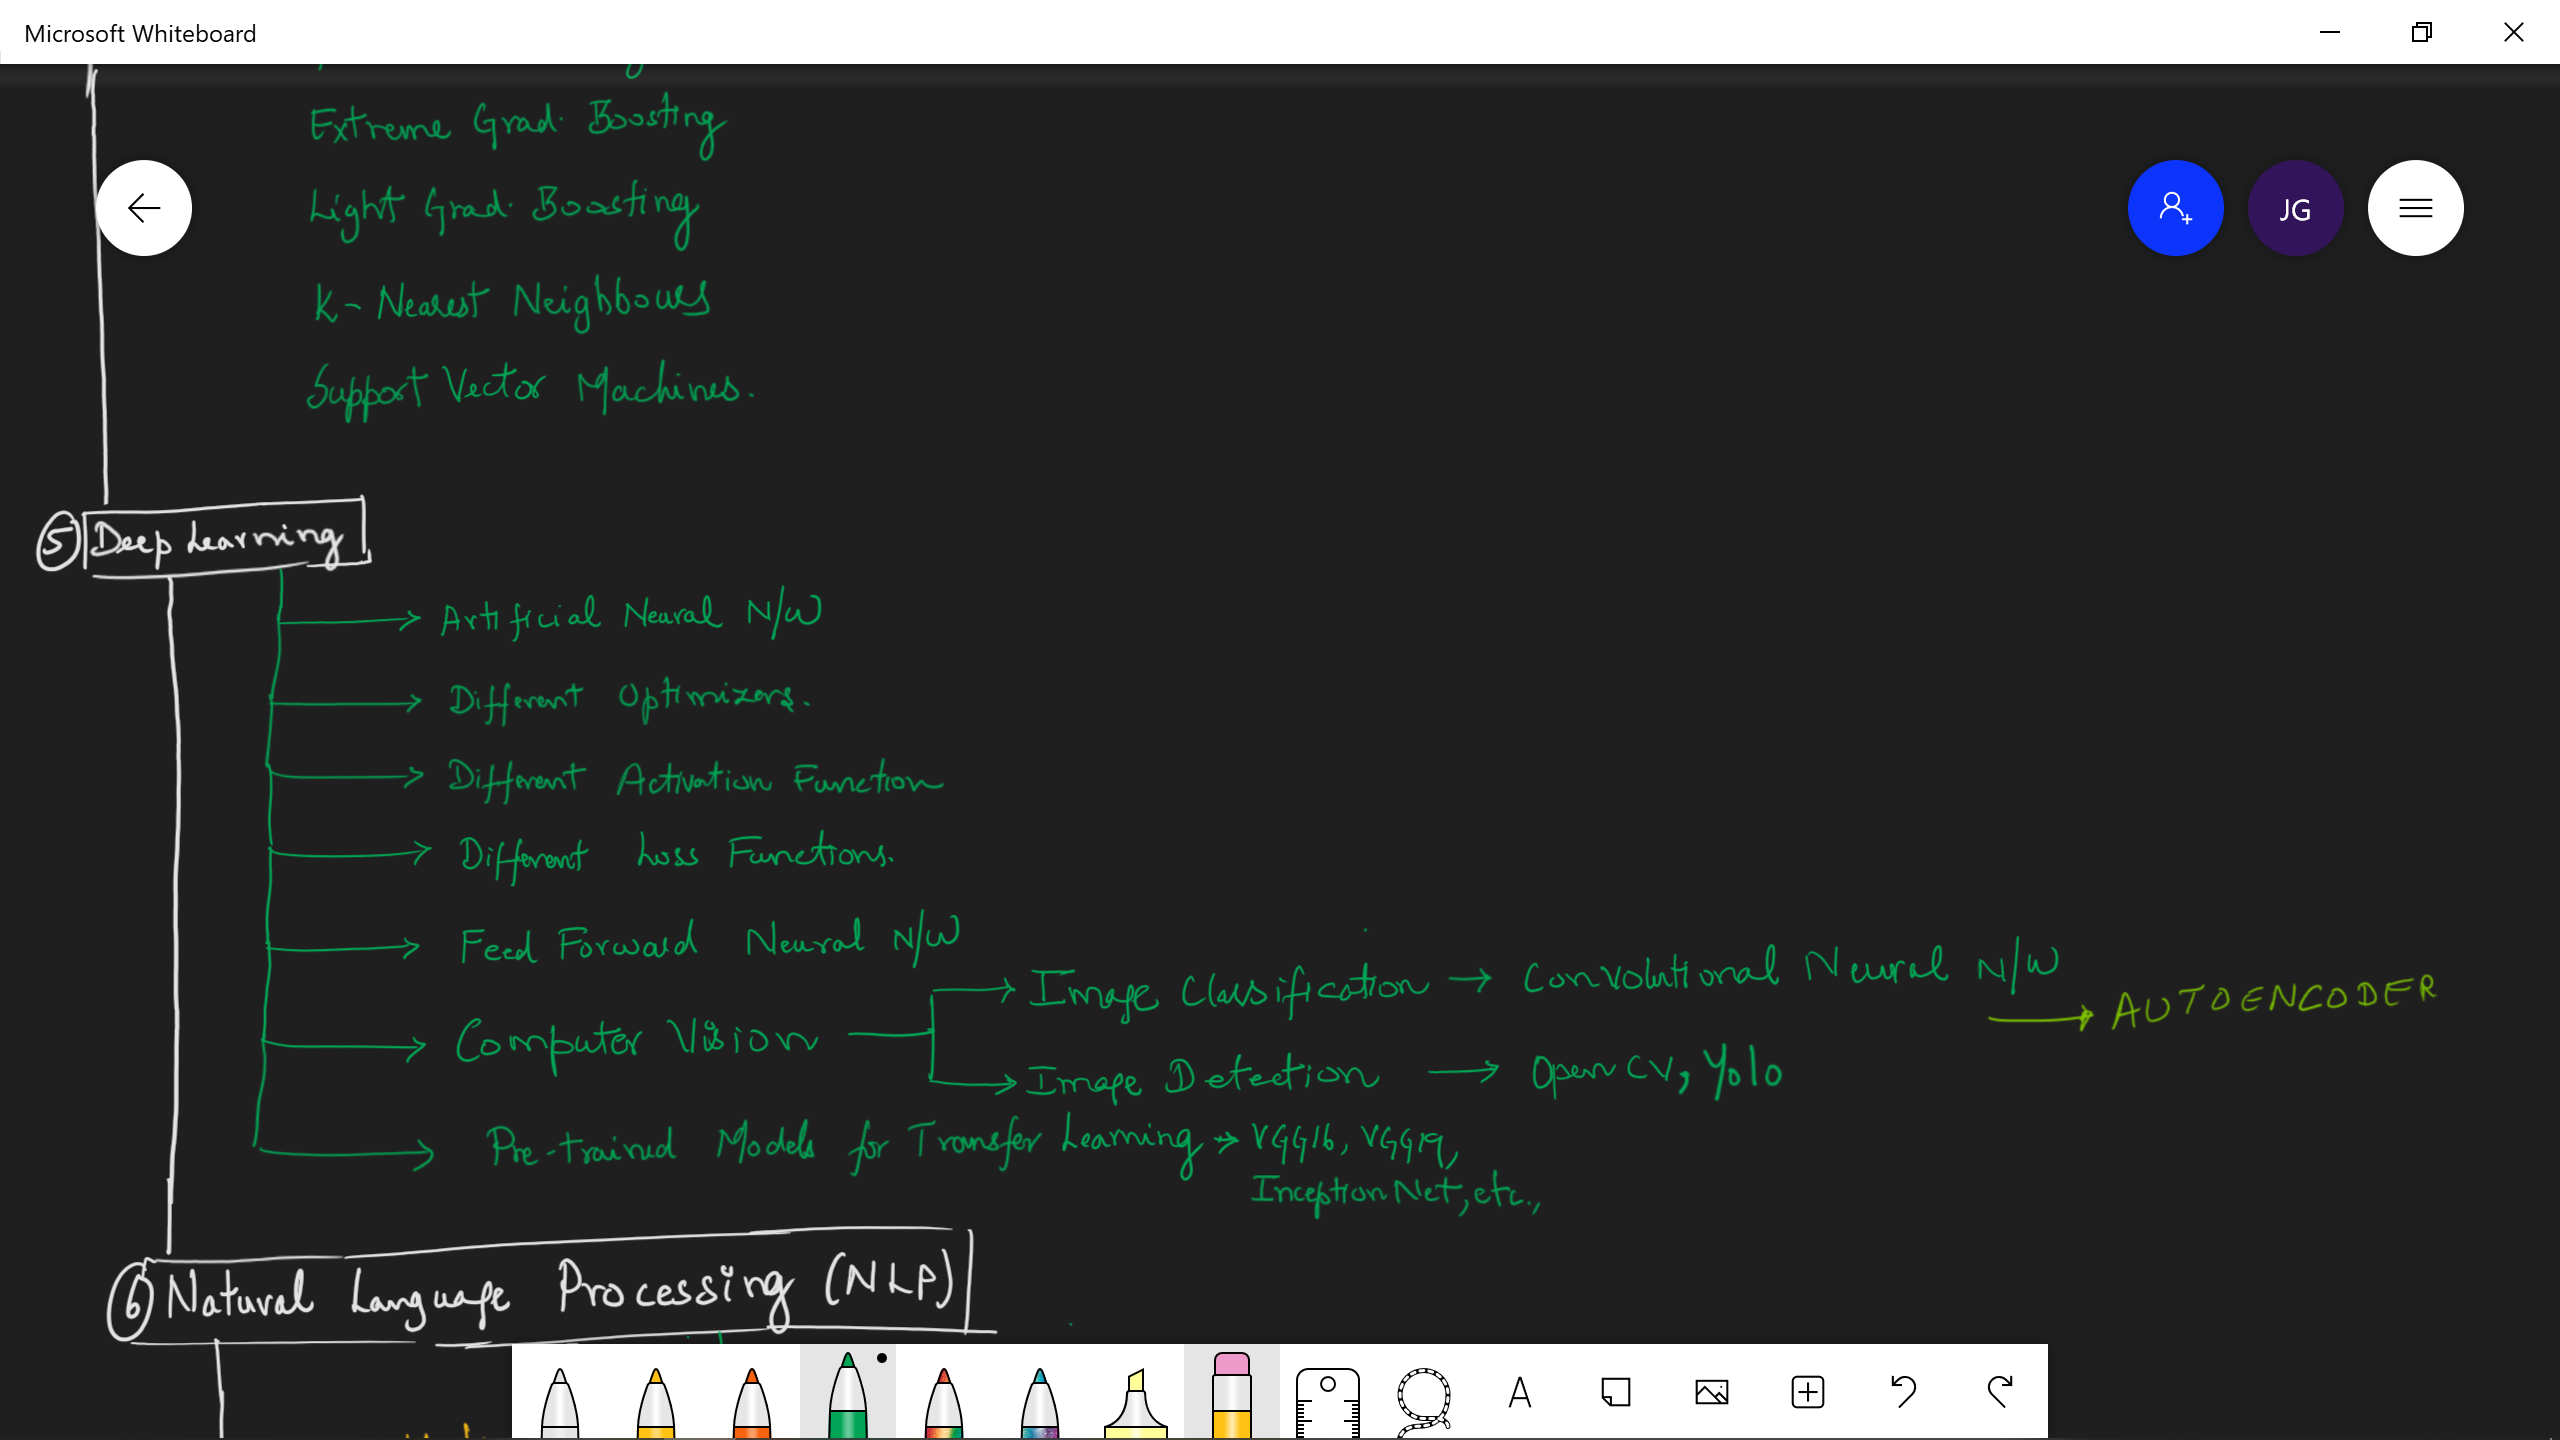 Microsoft Whiteboard
Extreme Grad. Boosting
Light Grad. Boosting
JG
K- Nearest Neighbours
Support Vector Machines.
5 Deep Learning
Artificial Neural N/W
Different Optimizers.
Different Activation Function
Different Loss Functions.
Feed Forward Neural N/W
Image Classification → Convolutional Neural N/W
→ AUTOENCODER
Computer Vision
Image Detection → Open CV, Yolo
Pre-trained Models for Transfer Learning → VGG16, VGG19,
Inception Net, etc.,
6 Natural Language Processing (NLP)
A